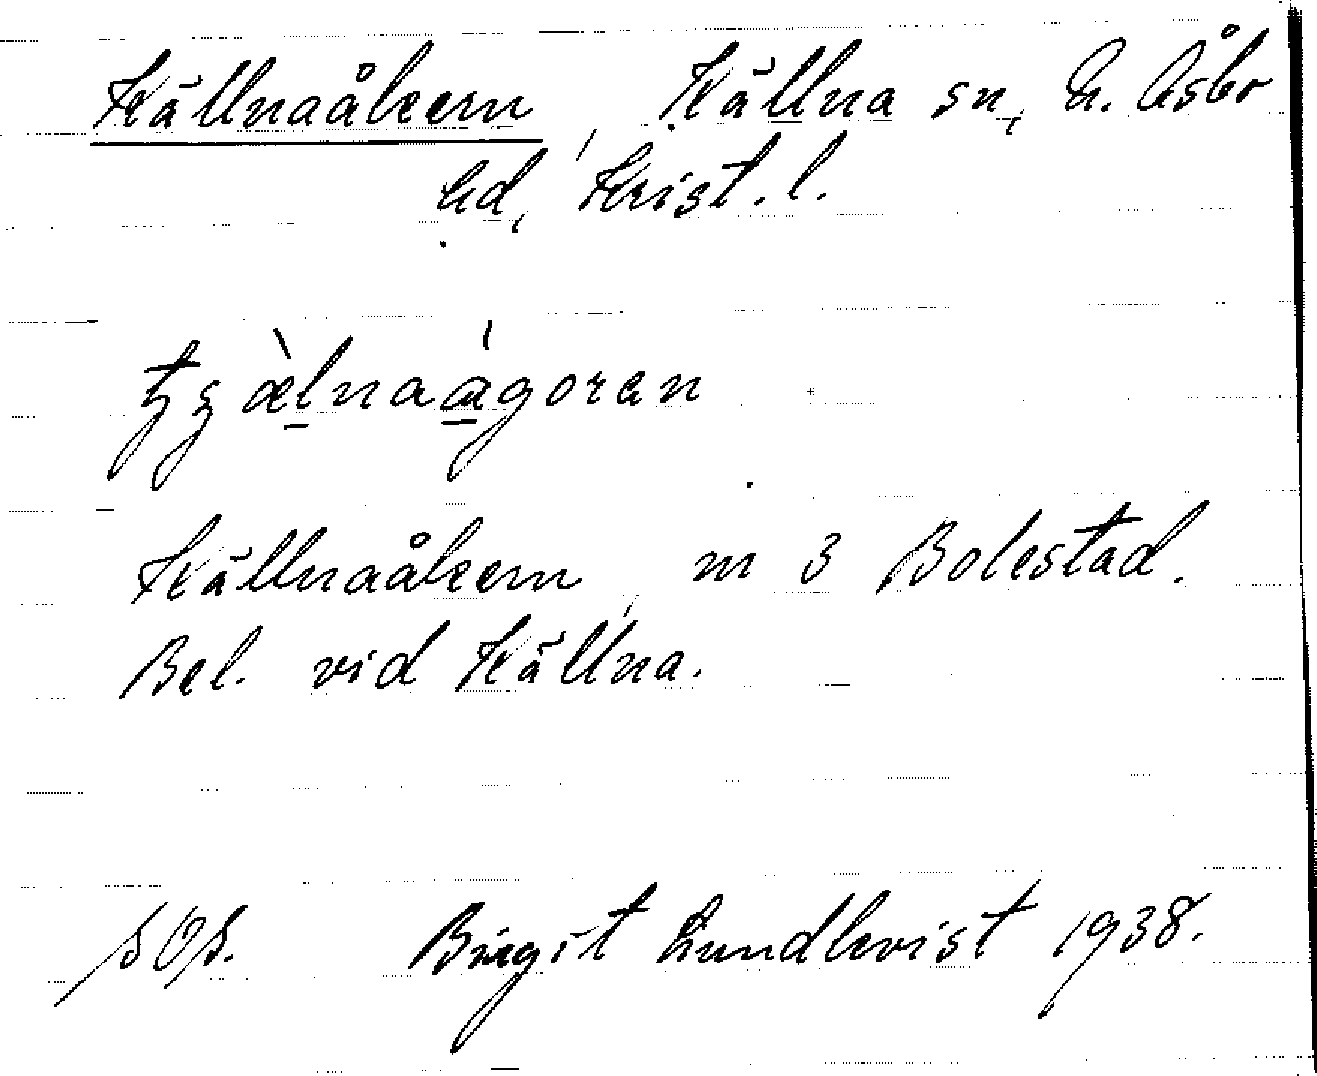 Källnaåkern, Källna sn, N. Åsbo
hd, Krist. l.
Källnaåkern, m 3 Bolestad.
Bel. vid Källna.
Birgit Lundkvist 1938.